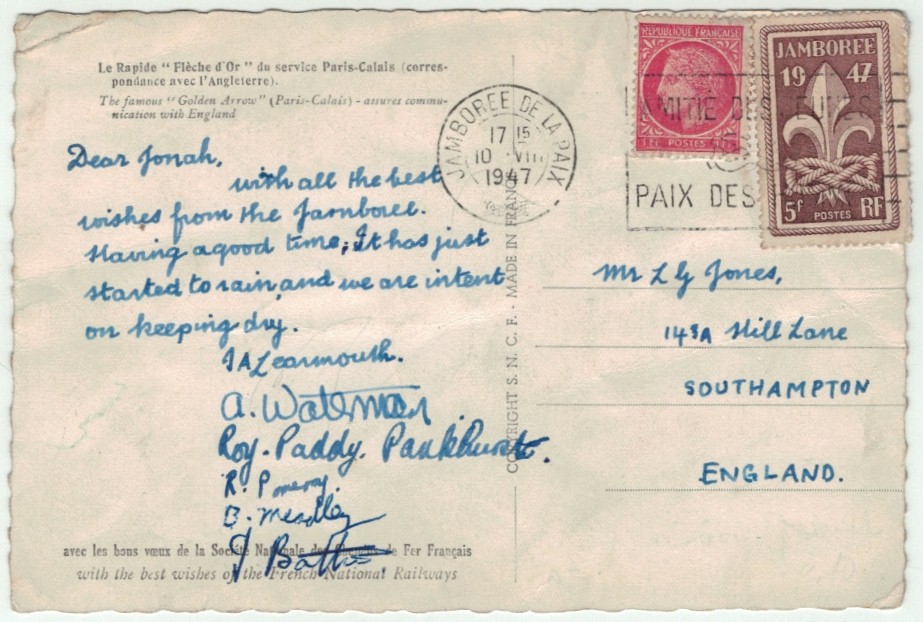 Le Rapide "Flèche d'Or" du service Paris-Calais (corres-
pondance avec l'Angleterre).
The famous "Golden Arrow" (Paris-Calais) - assures commu-
nication with England
Dear Jonah,
with all the best
wishes from the Jamboree.
Having a good time, It has just
started to rain, and we are intent
on keeping dry.
JALearmouth.
A. Waterman
Roy. Paddy. Pankhurst.
R. Pomeroy.
B. Mendley
avec les bons vœux de la Société Nationale des Chemins de Fer Français
with the best wishes of the French National Railways
COPYRIGHT S. N. C. F. - MADE IN FRANCE
JAMBOREE DE LA PAIX
17 15
10 VIII
1947
AMITIÉ DES JEUNES
PAIX DES
RÉPUBLIQUE FRANÇAISE
1F. POSTES 1F.
JAMBOREE
19 47
5f POSTES RF
Mr L G Jones,
143A Hill Lane
SOUTHAMPTON
ENGLAND.